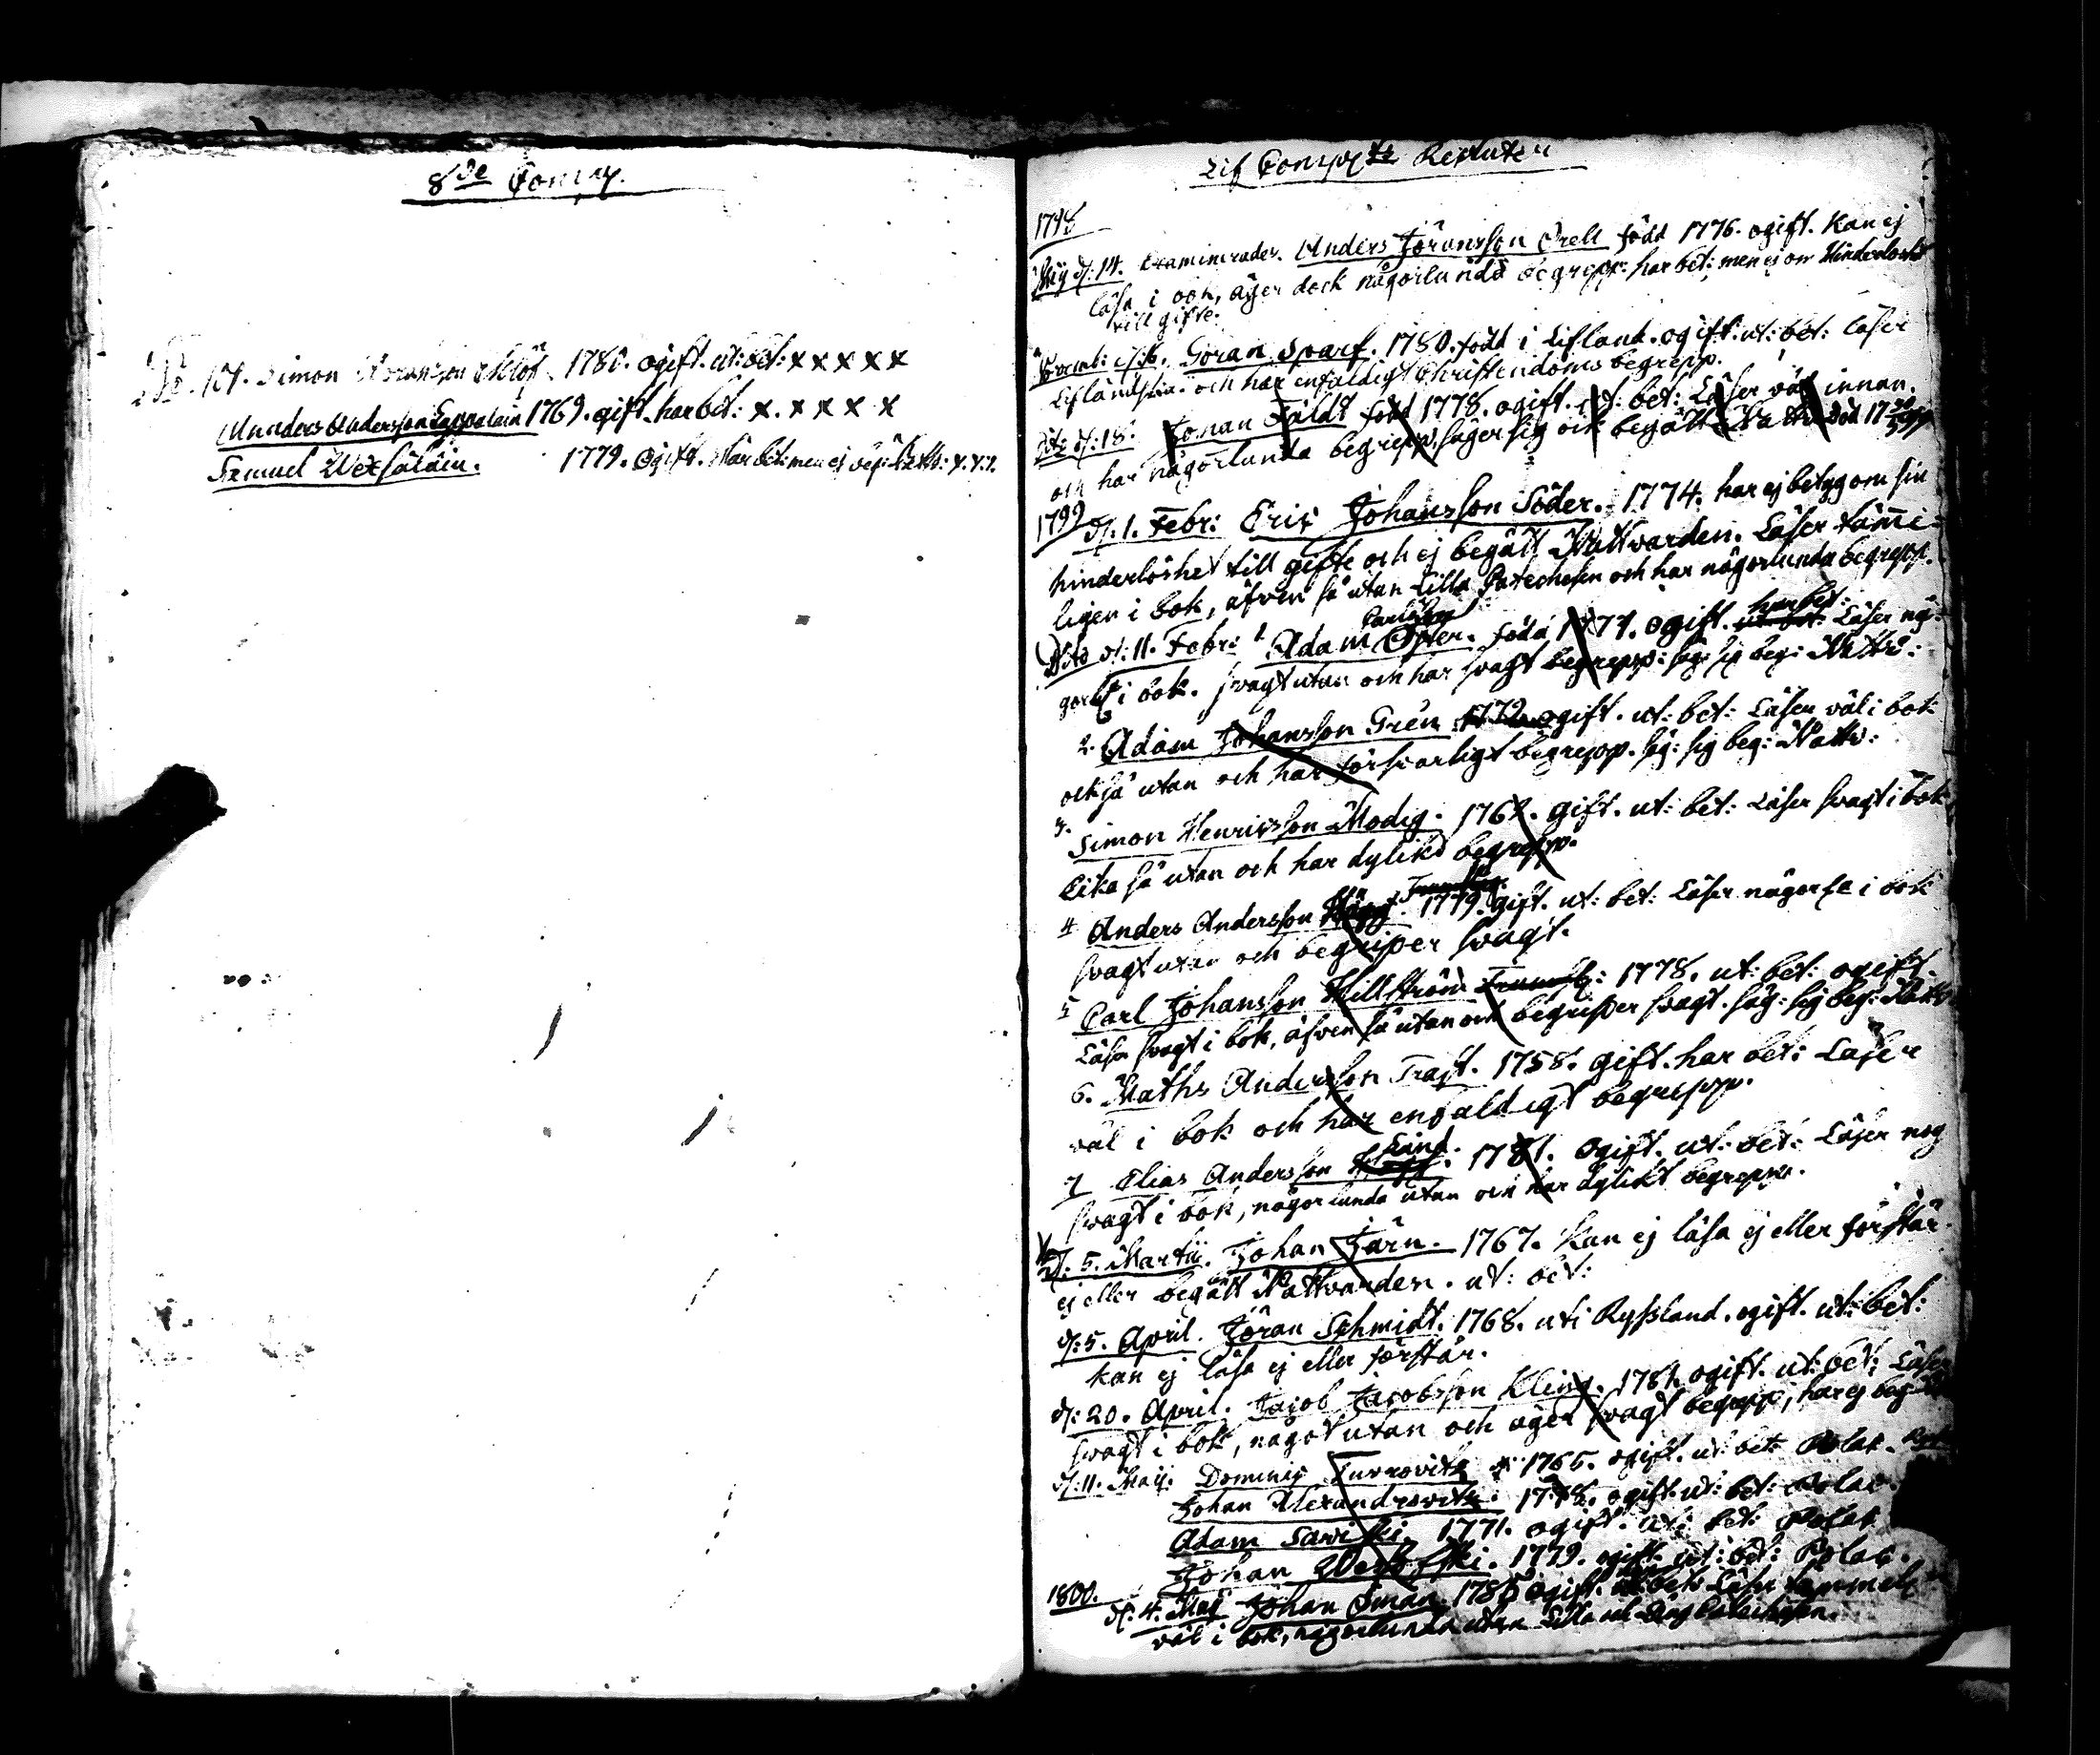 8de Comp.
No. 104. Simon ogift. ut: bet: x x x x x
Anders Andersson 1769. gift. har bet: x. x x x x
Samuel 1779. ogift. Har bet: men ej x. x. x.
Lif Comp Rekruter
1798
Maij d: 14. Examinerades. Anders Jöransson Orell född 1776. ogift. Kan ej
läsa i bok, äger dock någorlunda begrepp: har bet: men ej om Hinderlöshet
till gifte.
d: 16. Göran Sparf. 1780. född i Lifland. ogift. ut: bet: läser
Lifländska. och har enfaldigt Christendoms begrepp.
Dito d: 18. Jonan Fäldt född 1778. ogift. ut: bet: Läser väl innan.
och har någorlunda begrepp, säger sig ock begått Nattv:
1799
d. 1. Febr: Eric Johansson Söder. 1774. har ej betyg om sin
hinderlöshet till gifte och ej begått Nattvarden. Läser tämme-
ligen i bok, äfven så utan Lilla Catechesen och har någorlunda begrepp.
Dito d: 11. Febr: 1 Adam Carlsson Öster. född 1777. ogift. har bet: ut: bet: Läser nå-
gorl: i bok. svagt utan och har svagt begrepp: säg: sig beg: Nattv:
2. Adam Johansson Gren 1772. ogift. ut: bet: Läser väl i bok
också utan och har försvarligt begrepp. säg: sig beg: Nattv:
3. Simon Henriksson Modig. 1762. gift. ut: bet: Läser svagt i bok
lika så utan och har dylikt begrepp.
4 Anders Andersson Hägg. 1779. gift. ut: bet: Läser någorle i bok
svagt utan och begriper svagt.
5 Carl Johansson Hillström 1778. ut: bet: ogift.
Läser svagt i bok, äfven så utan och begriper svagt. säg: sig beg: Nattv
6. Maths Andersson Trast. 1758. gift. har bet: Läser
väl i bok och har enfaldigt begrepp.
7 Elias Andersson Lind. 1781. ogift. ut: bet: Läser nog
svagt i bok, någorlunda utan och har dylikt begrepp.
d: 5. Martii. Johan Järn. 1767. Kan ej läsa ej eller förstår
ej eller begått Nattvarden. ut: bet:
d: 5. April. Jöran Schmidt. 1768. uti Ryssland. ogift. ut: bet:
kan ej läsa ej eller förstår.
d: 20. April. Jacob Jacobsson Kling. 1781. ogift. ut: bet: Läser
svagt i bok, något utan och äger svagt begrepp, har ej beg:
d: 11. Maij. Dominiq 1765. ogift. ut: bet: Polak.
Johan Alexandrowitz. 1778. ogift. ut: bet: Polac.
Adam Sawiski. 1771. ogift. ut: bet: Polak
Johan 1779. ogift. ut: bet: Polac.
1800.
d: 4. Maij Johan Öman. 1785 ogift. bet: Läser
väl i bok, någorlunda utan Lilla Catechesen.